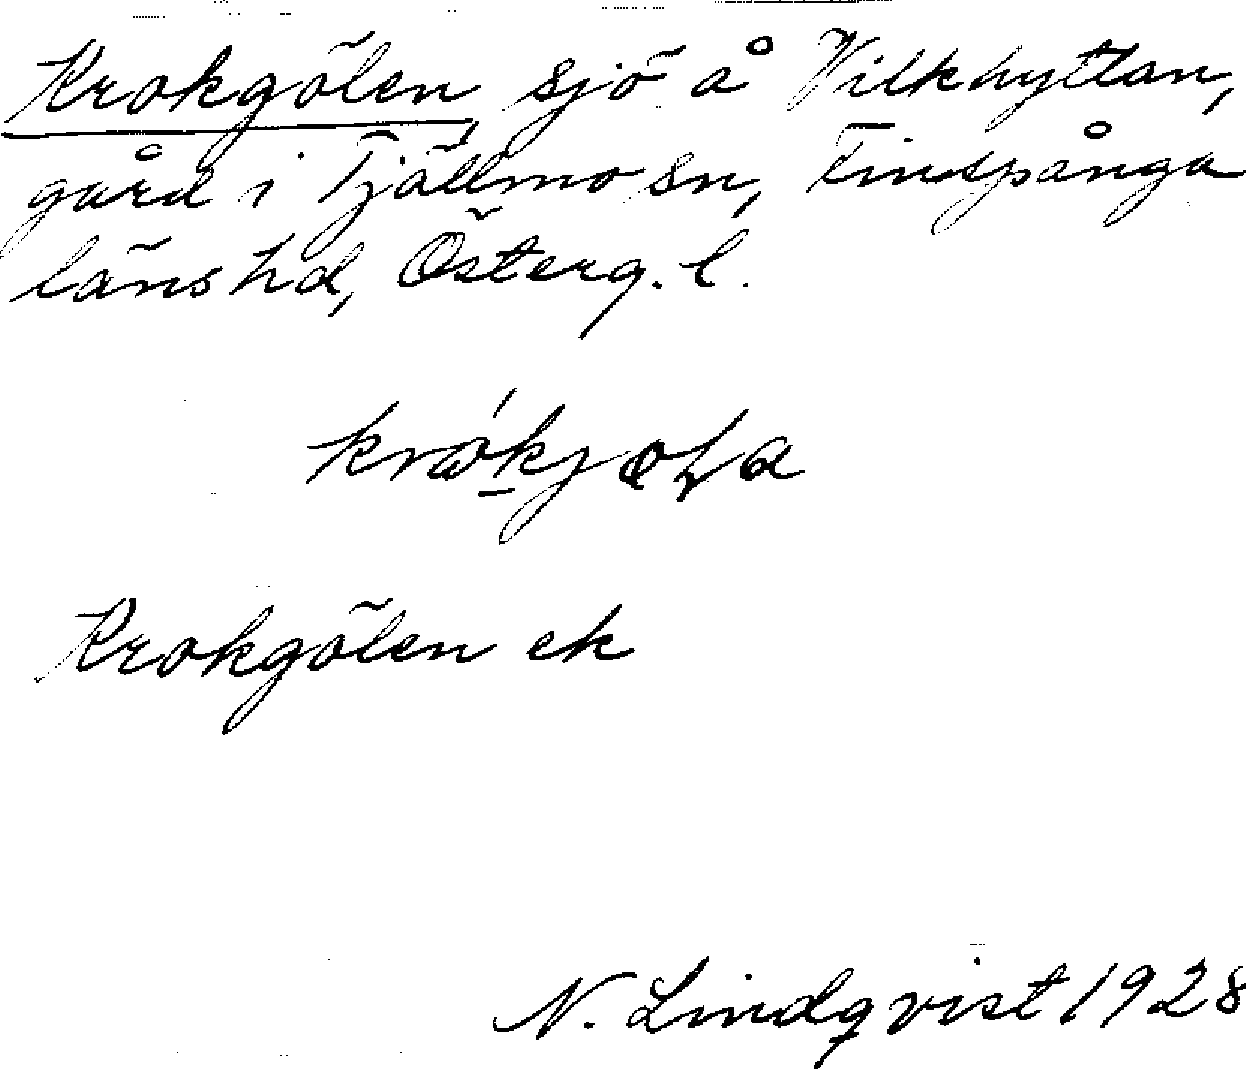 Krokgölen, sjö å Vilkhyttan,
gård i Tjällmo sn, Finspånga
läns hd, Österg. l.
Krokgölen ek
N. Lindqvist 1928